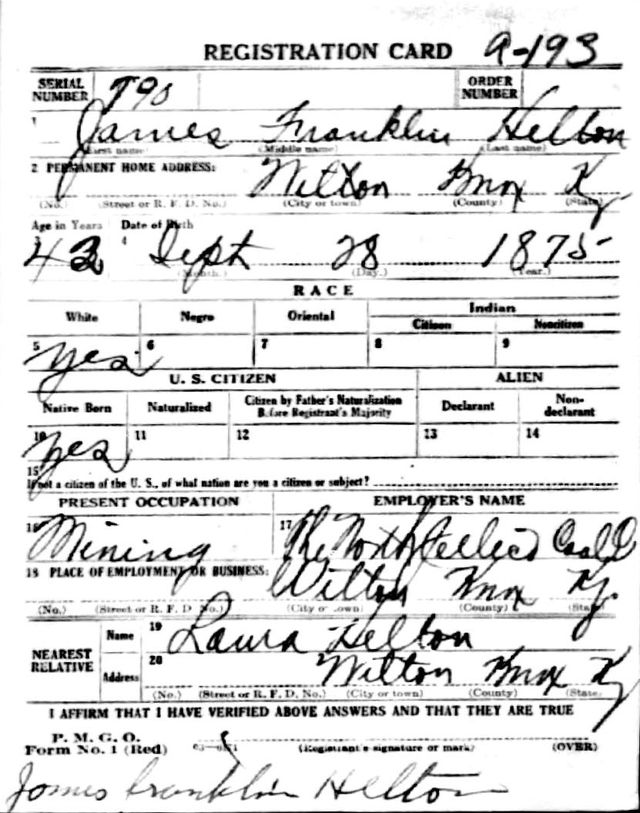 REGISTRATION CARD A-193
SERIAL NUMBER 790 ORDER NUMBER
1 James Franklin Helton
(First name) (Middle name) (Last name)
2 PERMANENT HOME ADDRESS: Wilton Knox Ky
(No.) (Street or R. F. D. No.) (City or town) (County) (State)
Age in Years Date of Birth
3 42 4 Sept 28 1875
(Month.) (Day.) (Year.)
RACE
White Negro Oriental Indian
Citizen Noncitizen
5 Yes 6 7 8 9
U. S. CITIZEN ALIEN
Native Born Naturalized Citizen by Father's Naturalization Before Registrant's Majority Declarant Non-declarant
10 Yes 11 12 13 14
15
If not a citizen of the U. S., of what nation are you a citizen or subject?
PRESENT OCCUPATION EMPLOYER'S NAME
16 Mining 17 The North Jellico Coal C
18 PLACE OF EMPLOYMENT OR BUSINESS: Wilton Knox Ky.
(No.) (Street or R. F. D No.) (City or town) (County) (State)
NEAREST RELATIVE Name 19 Laura Helton
Address 20 Wilton Knox Ky
(No.) (Street or R. F. D. No.) (City or town) (County) (State)
I AFFIRM THAT I HAVE VERIFIED ABOVE ANSWERS AND THAT THEY ARE TRUE
P. M. G. O.
Form No. 1 (Red) (Registrant's signature or mark) (OVER)
James Franklin Helton